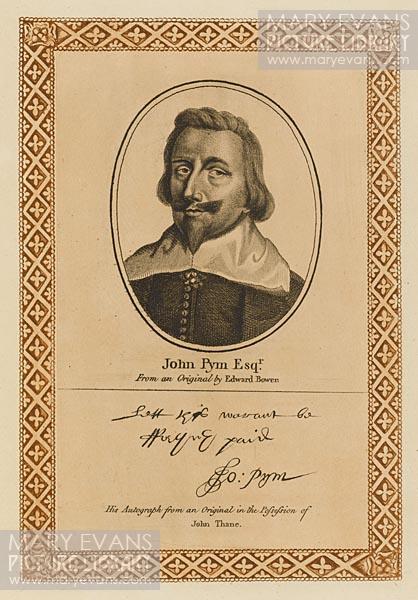 MARY EVANS
PICTURE LIBRARY
www.maryevans.com
John Pym Esqr.
From an Original by Edward Bower.
Lett this warant be
paid
Jo: Pym
His Autograph from an Original in the Possession of
John Thane.
MARY EVANS
PICTURE LIBRARY
www.maryevans.com